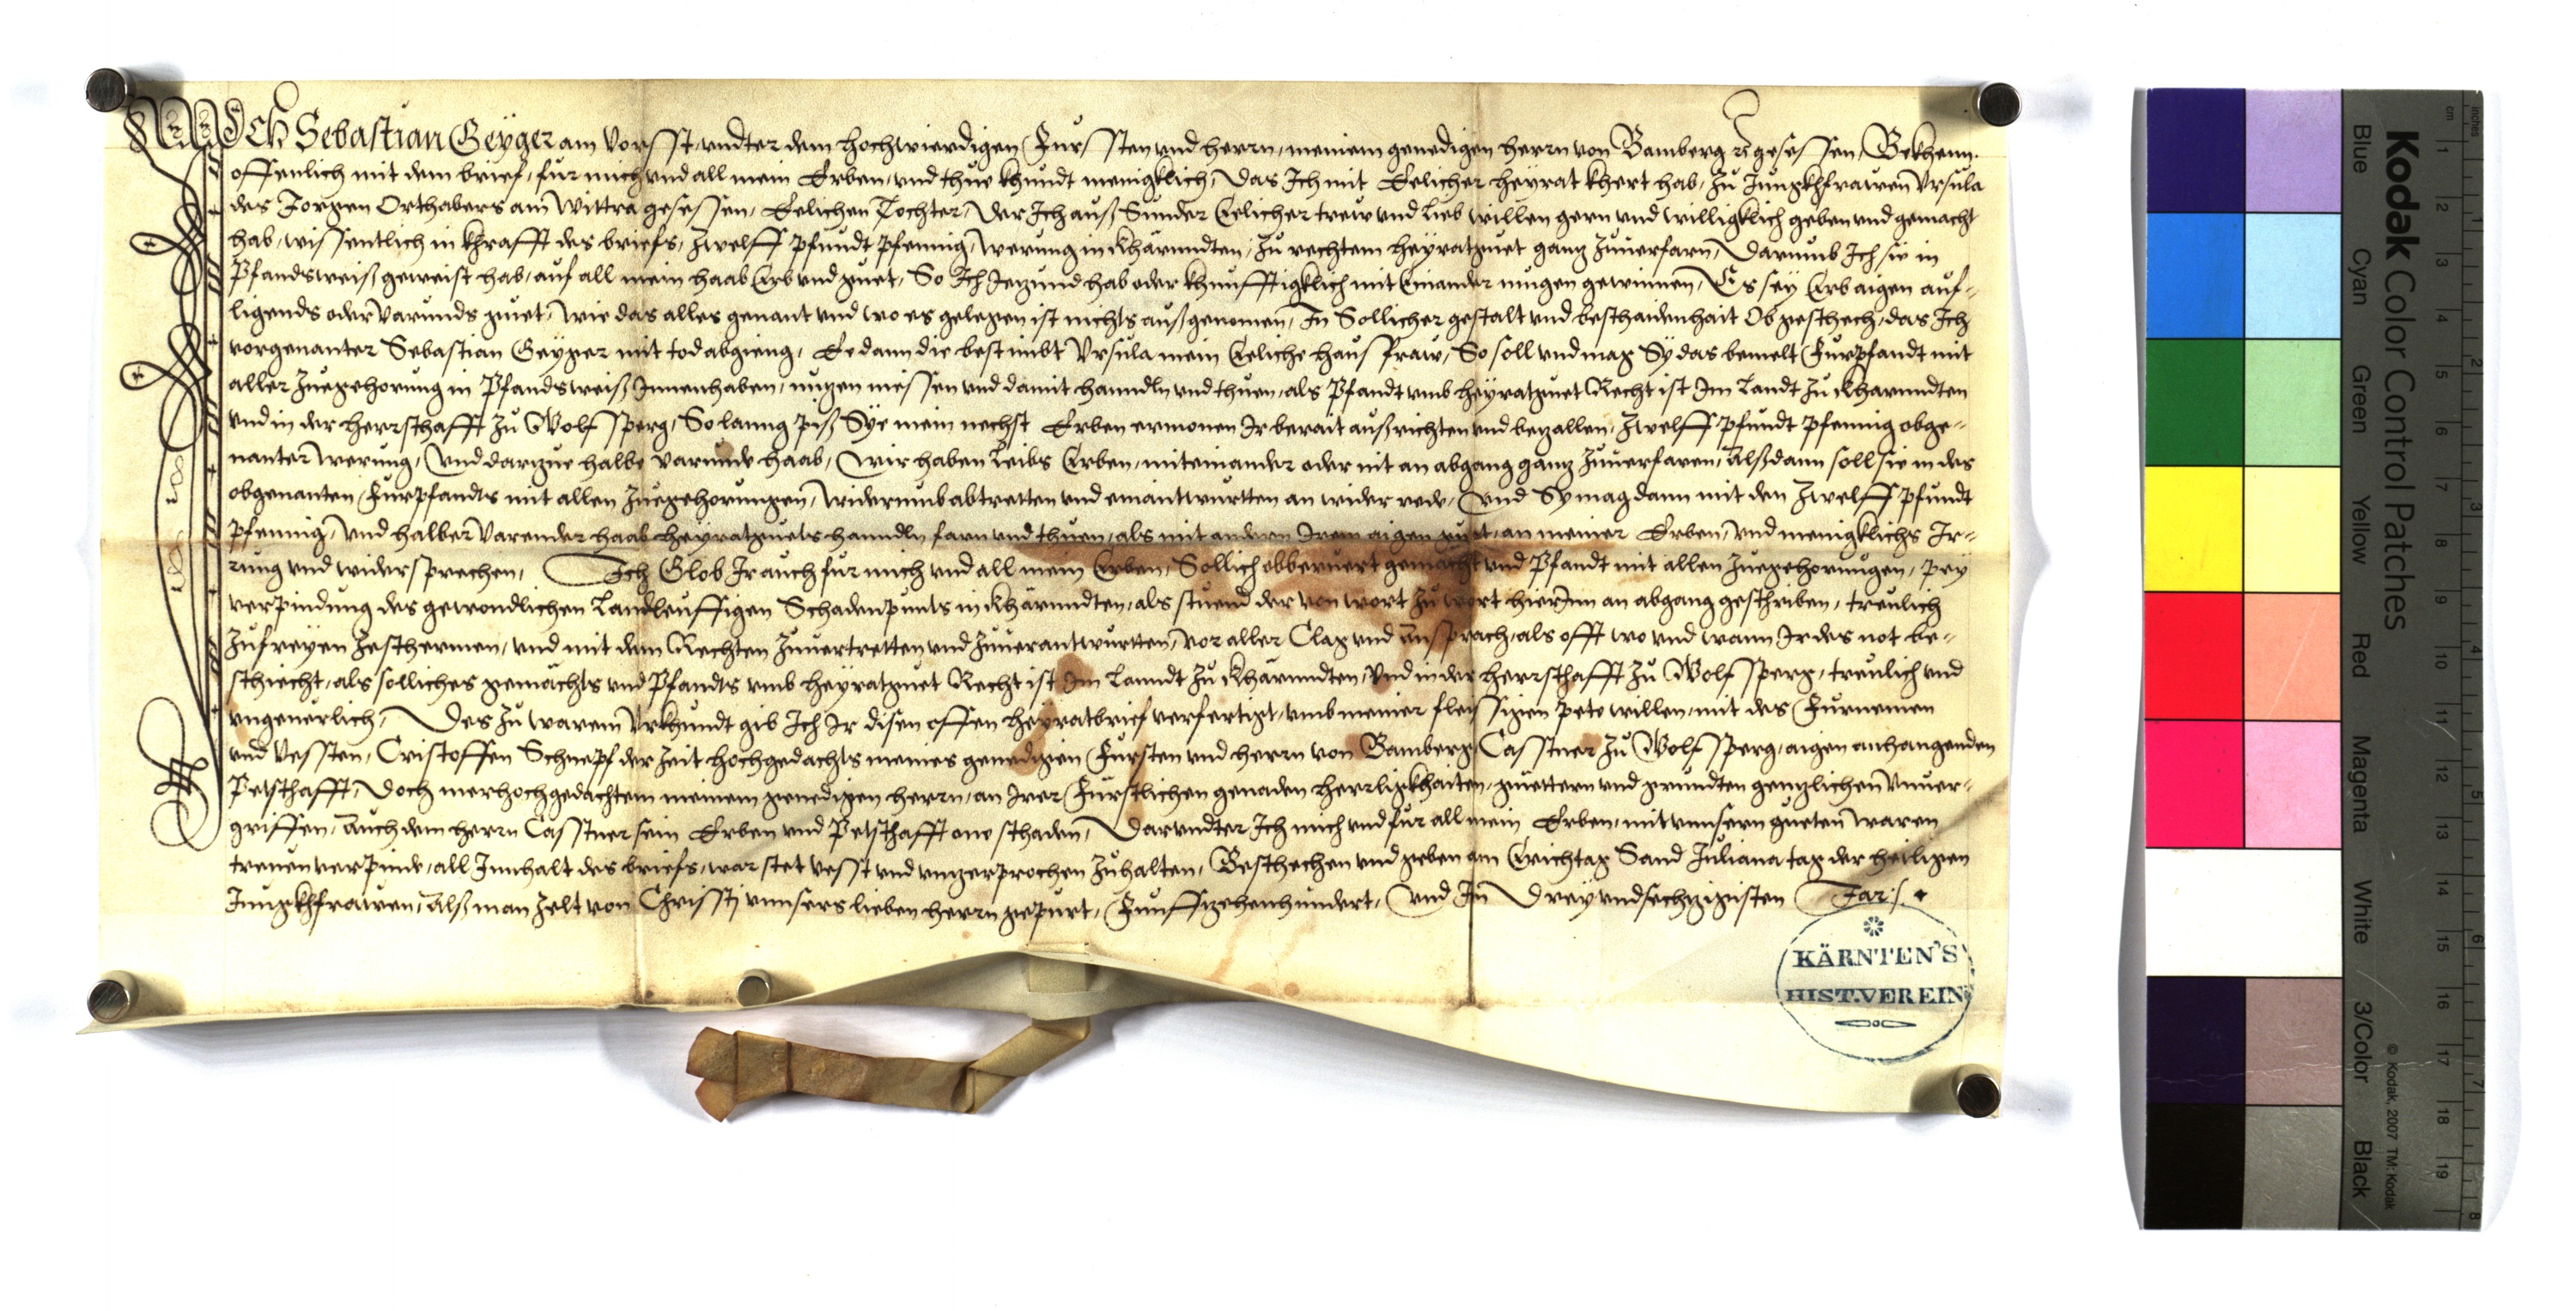 Ich Sebastian Geyger am Vorsst, vndter dem hochwierdigen Fursstenn vnd herrn, meinem genedigen herrn von Bamberg rc gesessen, Bekhenn.
offenlich mit dem brief, fur mich vnd all mein Erben, vnd thue khundt menigklich, Das Ich mit Eelicher heyrat khert hab, zu Jungkhfrawen Vrsula
des Jorgen Orthabers am Wittra gesessen, Eelichen Tochter, Der Ich auß Sunder Eelicher trew vnd Lieb willen gern vnd willigklich geben vnd gemacht
hab, wissentlich in khrafft des briefs, zwelff pfundt pfennig, werung in Khärnndten, zu rechtem heyratguet ganz zuuerfarn, Darumb Ich sie in
Pfandsweiß geweist hab, auf all mein haab Erb vnd guet, So Ich Iezund hab oder khunfftigklich mit Einander mugen gewinnen, Es sey Erb aigen auf-
ligends oder Varunds guet, wie das alles genant vnd wo es gelegen ist nichts außgenomen, In Sollicher gestalt vnd beschaidenhait Ob geschech, das Ich
vorgenanter Sebastian Geyger mit tod abgieng, Ee dann die bestimbt Vrsula mein Eeliche hausfraw, So soll vnd mag Sy das bemelt Furpfandt mit
aller Zuegehorung in Pfandsweiß Innenhaben, nuzen niessen vnd damit hanndln vnd thuen, als Pfandt vmb heyratguet Recht ist Im Landt zu Kharnndten
vnd in der herrschafft zu Wolfsperg, So lanng piß Sye mein nechst Erben ermonen Ir berait außrichten vnd bezallen, zwelff pfundt pfennig obge-
nanter werung, Vnd darzue halbe Varunde haab, Wir haben Leibs Erben, miteinander oder nit an abgang ganz zuuerfaren, Alßdann soll sie in des
obgenanten Furpfandts mit allen Zuegehorungen, widerumb abtretten vnd einantwurtten an wider rede, Vnd Sy mag dann mit den zwelff pfundt
pfennig, vnd halber Varender haab heyratguets hanndln farn vnd thuen, als mit andern Irem aigen guet, an meiner Erben, vnd menigklichs Ir-
rung vnd widersprechen, Ich Glob Ir auch fur mich vnd all mein Erben, Sollich obberuert gemacht vnd Pfandt mit allen Zuegehorungen, pey
verpindung des gewondlichen Landleuffigen Schadenpunts in Khärnndten, als stuend der von wort zu wort hierInn an abgang geschriben, treulich
zufreyen zeschermen, vnd mit dem Rechten zuuertretten vnd zuuerantwurtten, vor aller Clag vnd Ansprach, als offt wo vnd wann Ir des not be-
schiecht, als solliches gemächts vnd Pfandts vmb heyratguet Recht ist Im Lanndt zu Khärnndten, Vnd in der herrschafft zu Wolfsperg, treulich vnd
vngeuerlich, Des zu warem Vrkhundt gib Ich Ir disen offen heyratbrief verfertigt, vmb meiner fleissigen pete willen, mit des Furnemen
vnd Vessten, Cristoffen Schnepf der Zeit hochgedachts meines genedigen Fursten vnd herrn von Bamberg Casstner zu Wolfsperg, aigen anhangenden
Petschafft, Doch merhochgedachtem meinem genedigen herrn, an Irer Furstlichen genaden herrligkhaiten, guettern vnd grundten genzlichen Vnuer-
griffen, Auch dem herrn Casstner sein Erben vnd Petschafft one schaden, Darundter Ich mich vnd fur all mein Erben, mit vnnsern gueten Waren
treuen verpinde, all Innhalt des briefs, war stet vesst vnd vnzerprochen zuhalten, Beschechen vnd geben am Erichtag Sand Juliana tag der heiligen
Jungkhfrawen, Alß man zelt von Chrissti vnnsers lieben herrn gepurt, Funffzehenhundert, Vnd In Drey vnd sechzigisten Jars.
KÄRNTEN'S
HIST. VEREIN
Kodak Color Control Patches
Blue Cyan Green Yellow Red Magenta White 3/Color Black
© Kodak, 2007 TM: Kodak
cm 1 2 3 4 5 6 7 8 9 10 11 12 13 14 15 16 17 18 19
inches 1 2 3 4 5 6 7 8